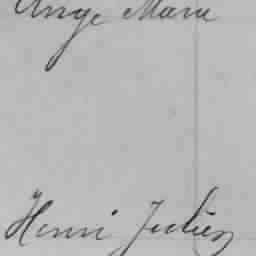 Ange Marie
Henri Julien